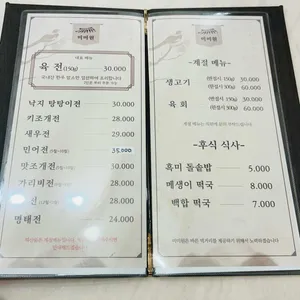 미미원
대표 메뉴
육 전(150g) 30.000
낙지 탕탕이전 30.000
키조개전 28.000
새우전 29.000
민어전 35.000
맛조개전 30.000
가리비전 28.000
전 28.000
명태전 24.000
미미원
-계절 메뉴-
생고기 (한접시 150g) 30.000
(한접시 300g) 60.000
육 회 (한접시 150g) 30.000
(한접시 300g) 60.000
-후식 식사-
흑미 돌솥밥 5.000
매생이 떡국 8.000
백합 떡국 7.000